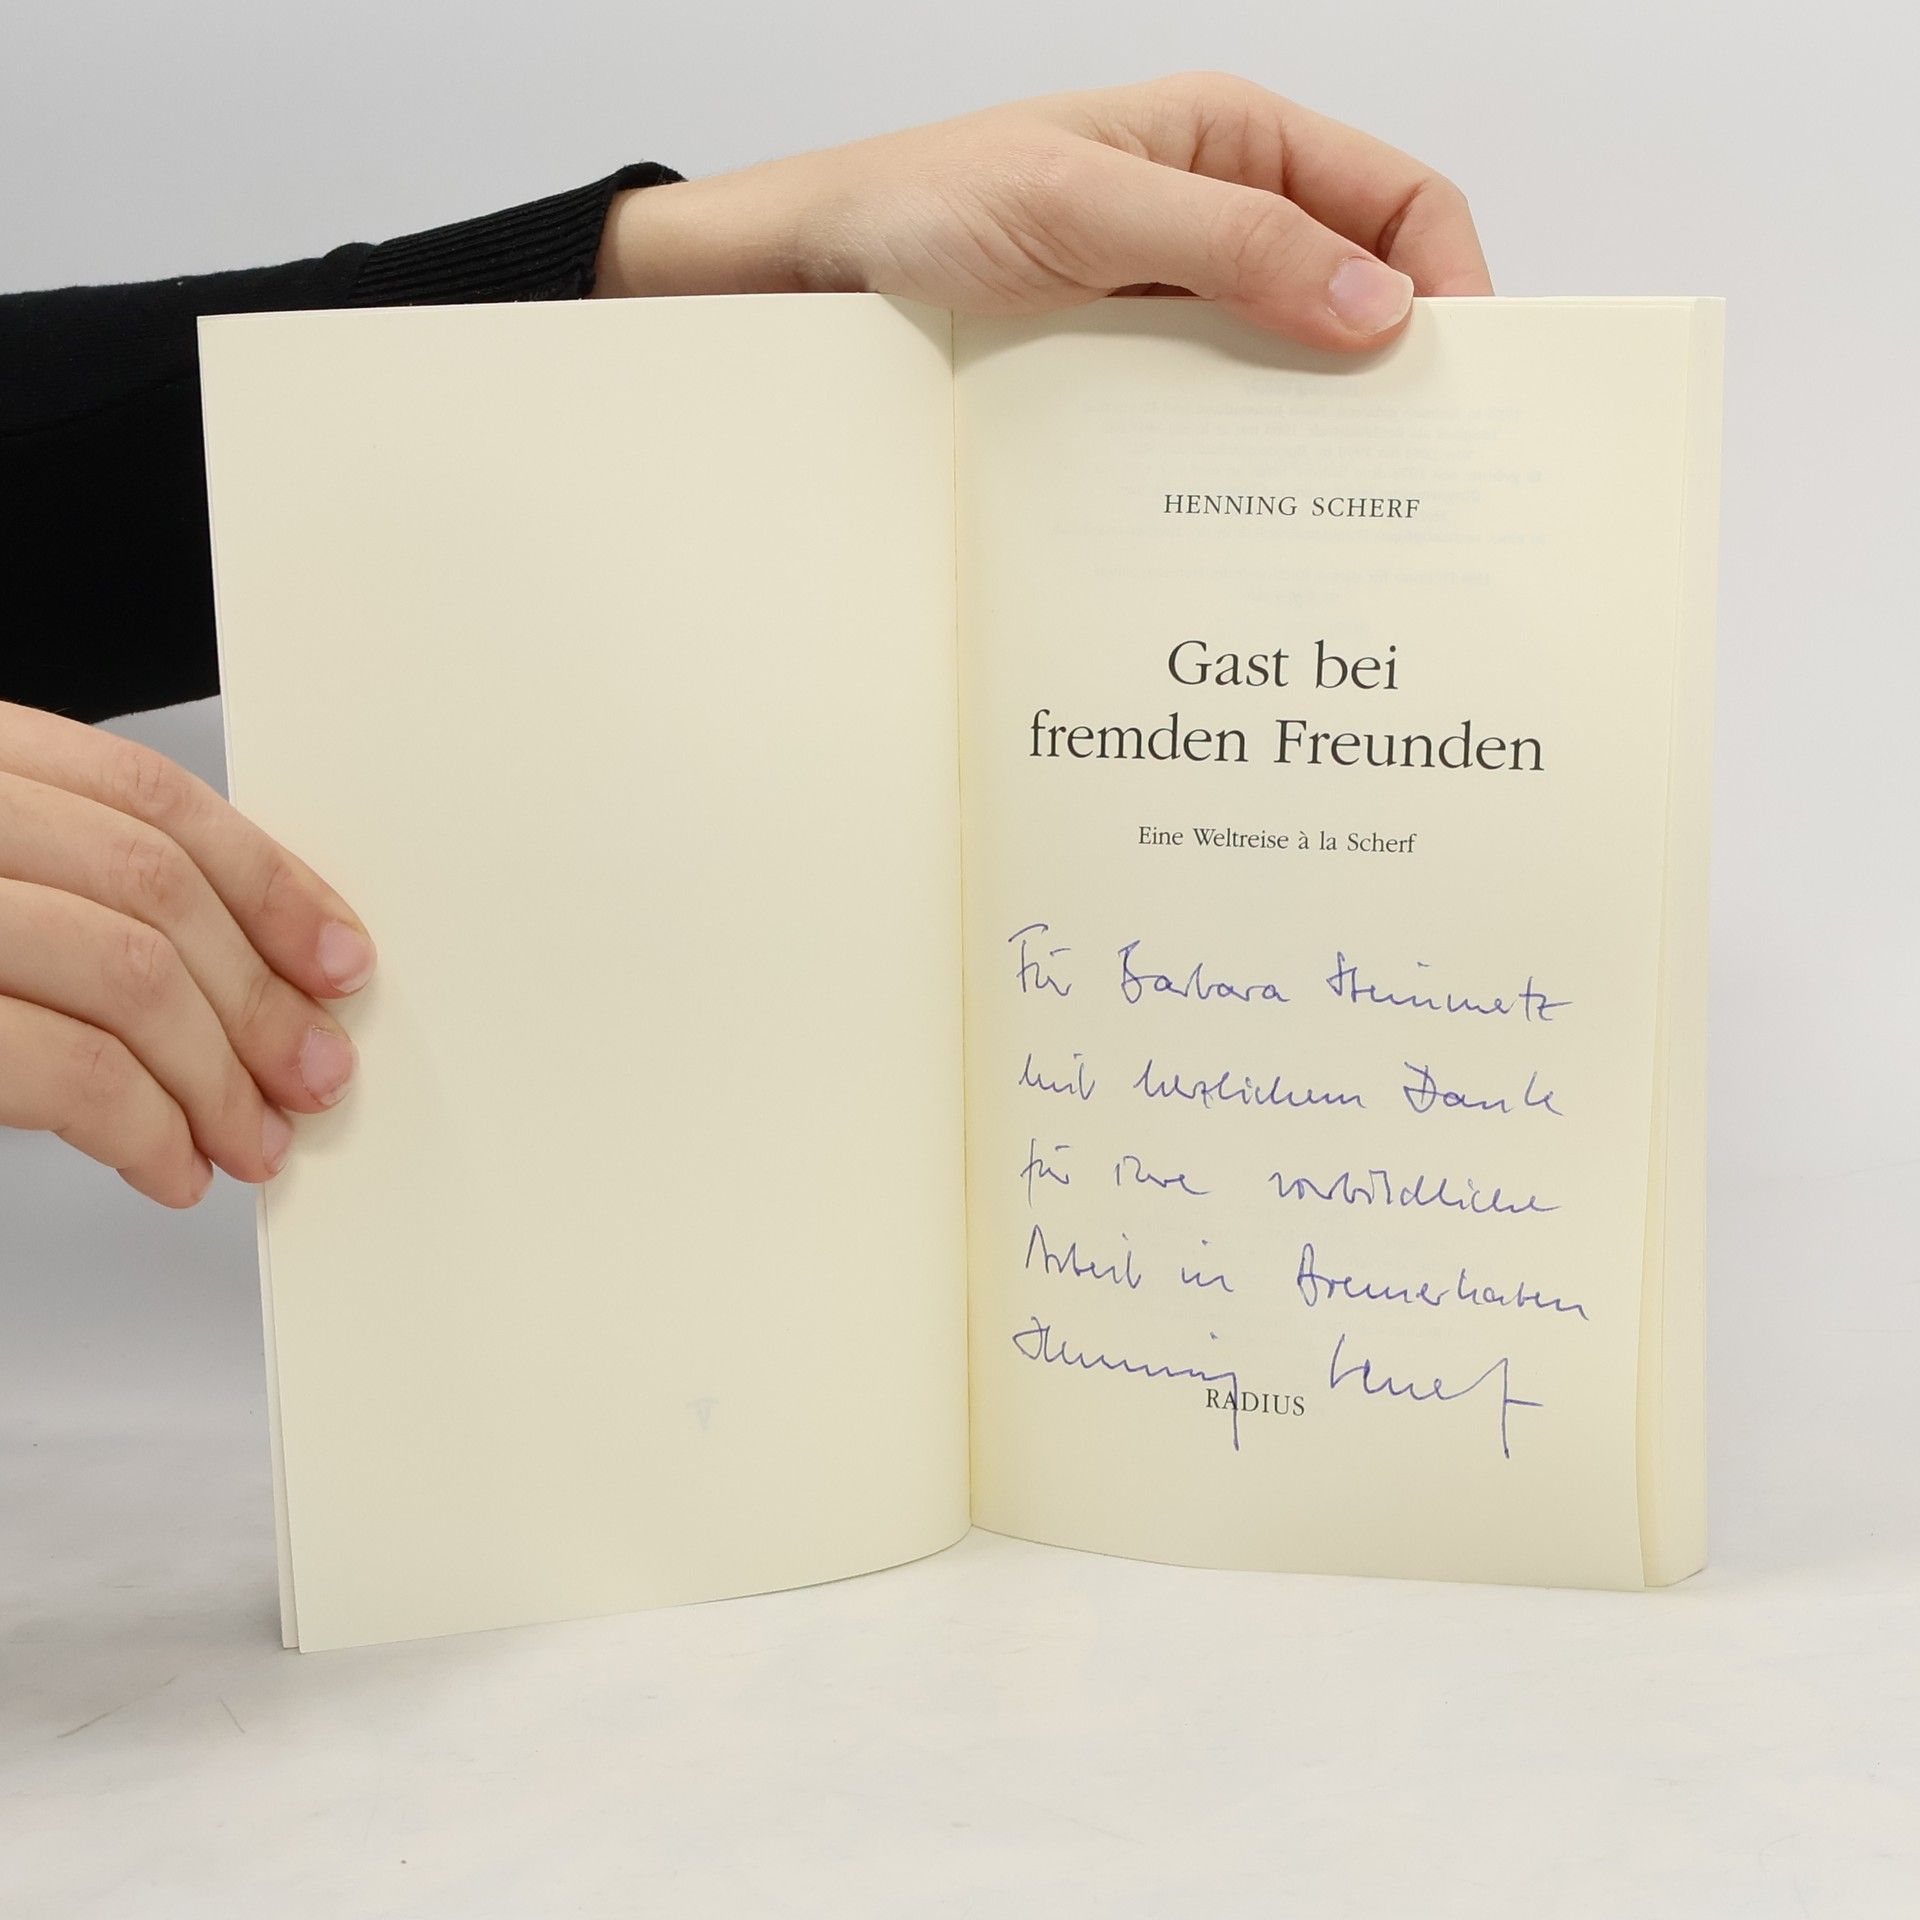 HENNING SCHERF
Gast bei
fremden Freunden
Eine Weltreise à la Scherf
Für Barbara Steinmetz
mit herzlichem Dank
für Ihre vorbildliche
Arbeit in Bremerhaven
Henning Scherf
RADIUS